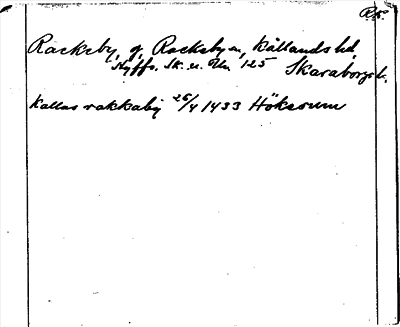 Rk.
Rackeby, g, Rackeby sn, Kållands hd,
Hyffs. Sk. u. Un 125 Skaraborgs l.
Kallas rakkaby 26/4 1433 Hökerum